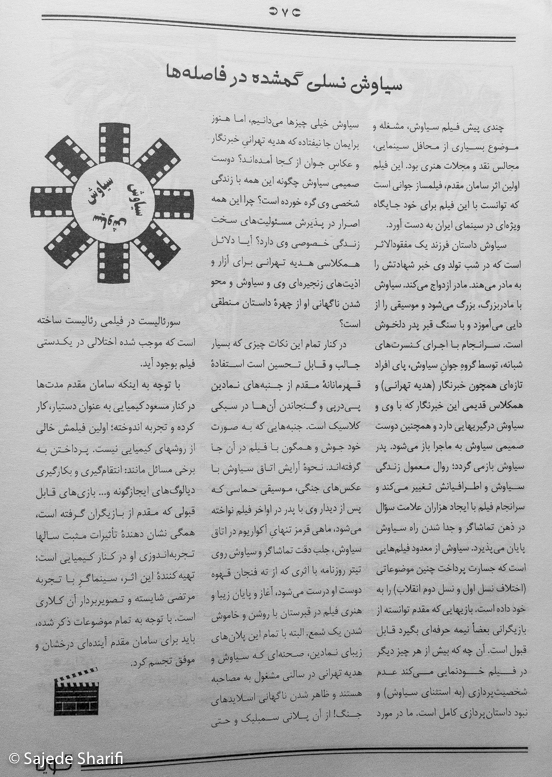 ۷
سیاوش نسلی گمشده در فاصله‌ها
چندی پیش فیلم سیاوش، مشغله و
موضوع بسیاری از محافل سینمایی،
مجالس نقد و مجلات هنری بود. این فیلم
اولین اثر سامان مقدم، فیلمساز جوانی است
که توانست با این فیلم برای خود جایگاه
ویژه‌ای در سینمای ایران به دست آورد.
سیاوش داستان فرزند یک مفقودالاثر
است که در شب تولد وی خبر شهادتش را
به مادر می‌هند. مادر ازدواج می‌کند، سیاوش
با مادربزرگ، بزرگ می‌شود و موسیقی را از
دایی می‌آموزد و با سنگ قبر پدر دلخوش
است. سرانجام با اجرای کنسرت‌های
شبانه، توسط گروه جوان سیاوش، پای افراد
تازه‌ای همچون خبرنگار (هدیه تهرانی) و
همکلاس قدیمی این خبرنگار که با وی و
سیاوش درگیریهایی دارد و همچنین دوست
صمیمی سیاوش به ماجرا باز می‌شود. پدر
سیاوش بازمی گردد؛ روال معمول زندگی
سیاوش و اطرافیانش تغییر می‌کند و
سرانجام فیلم با ایجاد هزاران علامت سؤال
در ذهن تماشاگر و جدا شدن راه سیاوش
پایان می‌پذیرد. سیاوش از معدود فیلم‌هایی
است که جسارت پرداخت چنین موضوعاتی
(اختلاف نسل اول و نسل دوم انقلاب) را به
خود داده است. بازیهایی که مقدم توانسته از
بازیگرانی بعضاً نیمه حرفه‌ای بگیرد قابل
قبول است. آن چه که بیش از هر چیز دیگر
در فیلم خودنمایی می‌کند عدم
شخصیت‌پردازی (به استثنای سیاوش) و
نبود داستان‌پردازی کامل است. ما در مورد
سیاوش خیلی چیزها می‌دانیم، اما هنوز
برایمان جا نیفتاده که هدیه تهرانی خبرنگار
و عکاس جوان از کجا آمده‌اند؟ دوست
صمیمی سیاوش چگونه این همه با زندگی
شخصی وی گره خورده است؟ چرا این همه
اصرار در پذیرش مسئولیت‌های سخت
زندگی خصوصی وی دارد؟ آیا دلائل
همکلاسی هدیه تهرانی برای آزار و
اذیت‌های زنجیره‌ای وی و سیاوش و محو
شدن ناگهانی او از چهرهٔ داستان منطقی
است؟
در کنار تمام این نکات چیزی که بسیار
جالب و قابل تحسین است استفادهٔ
قهرمانانهٔ مقدم از جنبه‌های نمادین
پی‌درپی و گنجاندن آن‌ها در سبکی
کلاسیک است. جنبه‌هایی که به صورت
خود جوش و همگون با فیلم در آن جا
گرفته‌اند. نحوهٔ آرایش اتاق سیاوش با
عکس‌های جنگی، موسیقی حماسی که
پس از دیدار وی با پدر در اواخر فیلم نواخته
می‌شود، ماهی قرمز تنهای آکواریوم در اتاق
سیاوش، جلب دقت تماشاگر و سیاوش روی
تیتر روزنامه با اثری که از ته فنجان قهوه
دوست او درست می‌شود، آغاز و پایان زیبا و
هنری فیلم در قبرستان با روشن و خاموش
شدن یک شمع. البته با تمام این پلان‌های
زیبای نمادین، صحنه‌ای که سیاوش و
هدیه تهرانی در سالنی مشغول به مصاحبه
هستند و ظاهر شدن ناگهانی اسلایدهای
جنگ! از آن پلانی سمبلیک و حتی
سیاوش
سیاوش
سیاوش
سیاوش
سورئالیست در فیلمی رئالیست ساخته
است که موجب شده اختلالی در یکدستی
فیلم بوجود آید.
با توجه به اینکه سامان مقدم مدت‌ها
در کنار مسعود کیمیایی به عنوان دستیار، کار
کرده و تجربه اندوخته؛ اولین فیلمش خالی
از روشهای کیمیایی نیست. پرداختن به
برخی مسائل مانند: انتقام‌گیری و بکارگیری
دیالوگ‌های ایجازگونه و... بازی‌های قابل
قبولی که مقدم از بازیگران گرفته است،
همگی نشان دهندهٔ تأثیرات مثبت سالها
تجربه‌اندوزی او در کنار کیمیایی است؛
تهیه کنندهٔ این اثر، سینماگر با تجربه
مرتضی شایسته و تصویربردار آن کلاری
است. با توجه به تمام موضوعات ذکر شده،
باید برای سامان مقدم آینده‌ای درخشان و
موفق تجسم کرد.
© Sajede Sharifi